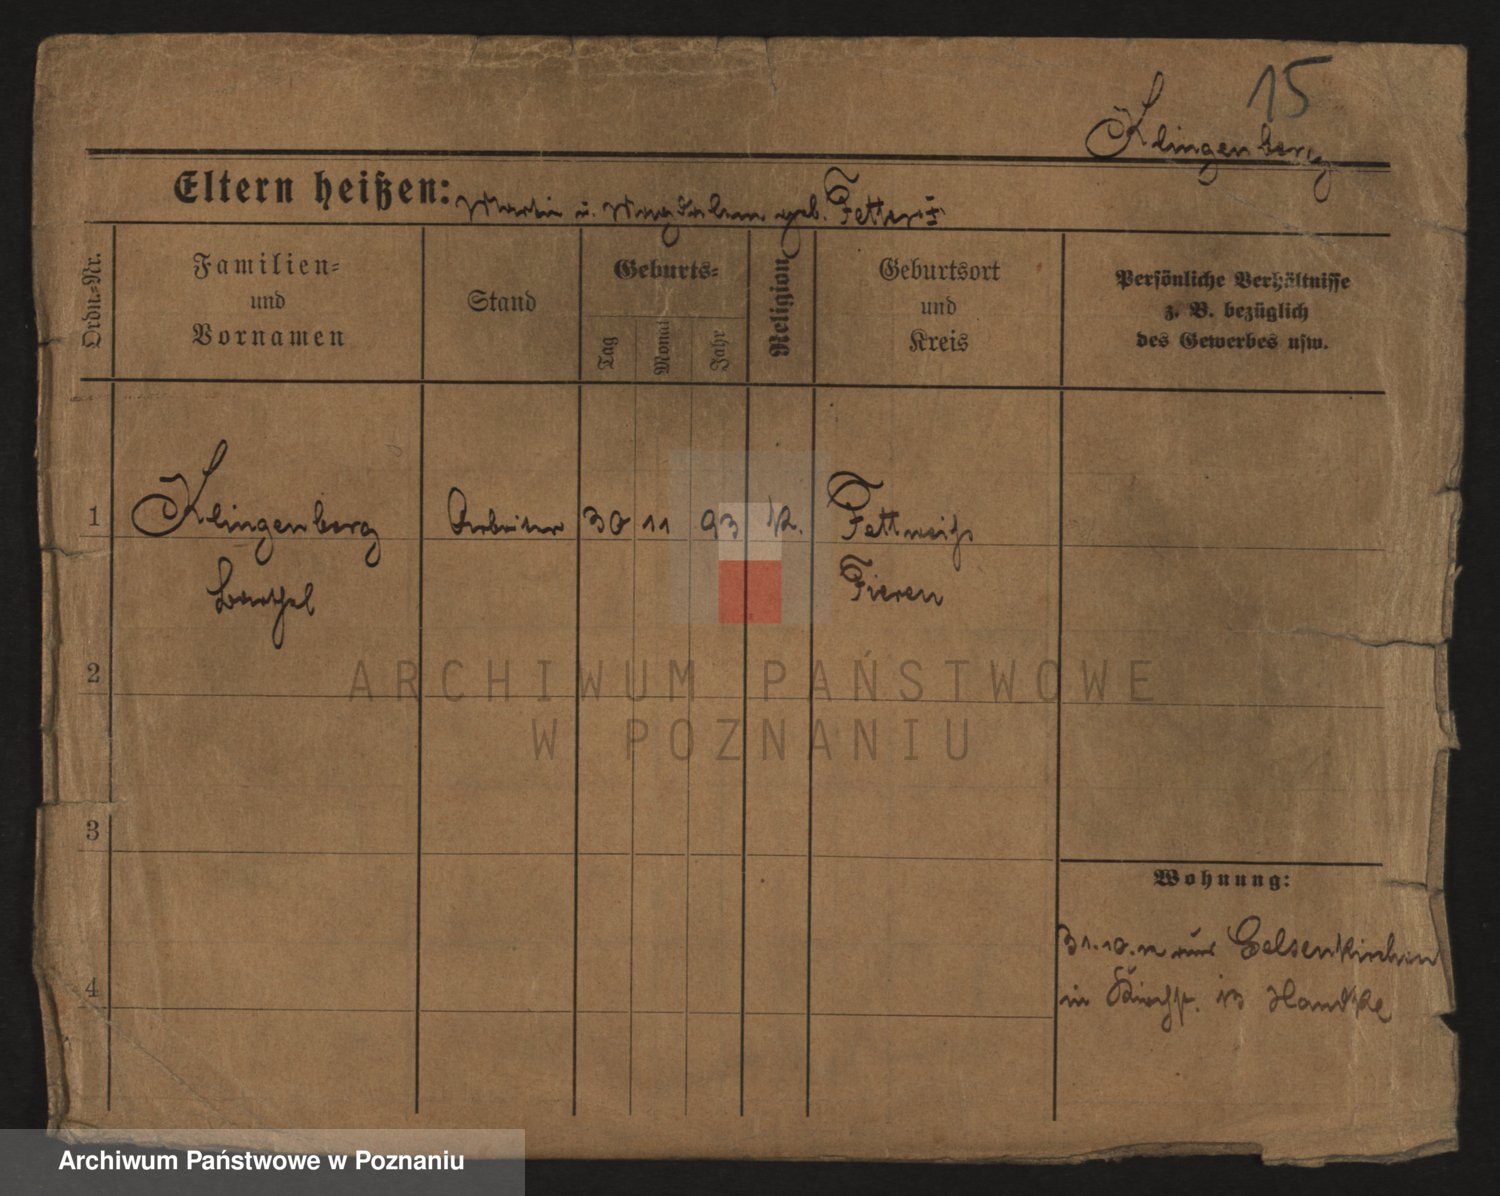 15
Klingenberg
Eltern heißen: Martin u. Magdalena geb.
Ordn.-Nr.
Familien-
und
Vornamen
Stand
Geburts-
Tag
Monat
Jahr
Religion
Geburtsort
und
Kreis
Persönliche Verhältnisse
z. B. bezüglich
des Gewerbes usw.
1 Klingenberg Arbeiter 30 11 93 k. Fettweiß
Barthel
2
3
4
Wohnung:
31.10. aus Gelsenkirchen
in Kirchst. 13
ARCHIWUM PAŃSTWOWE
W POZNANIU
Archiwum Państwowe w Poznaniu